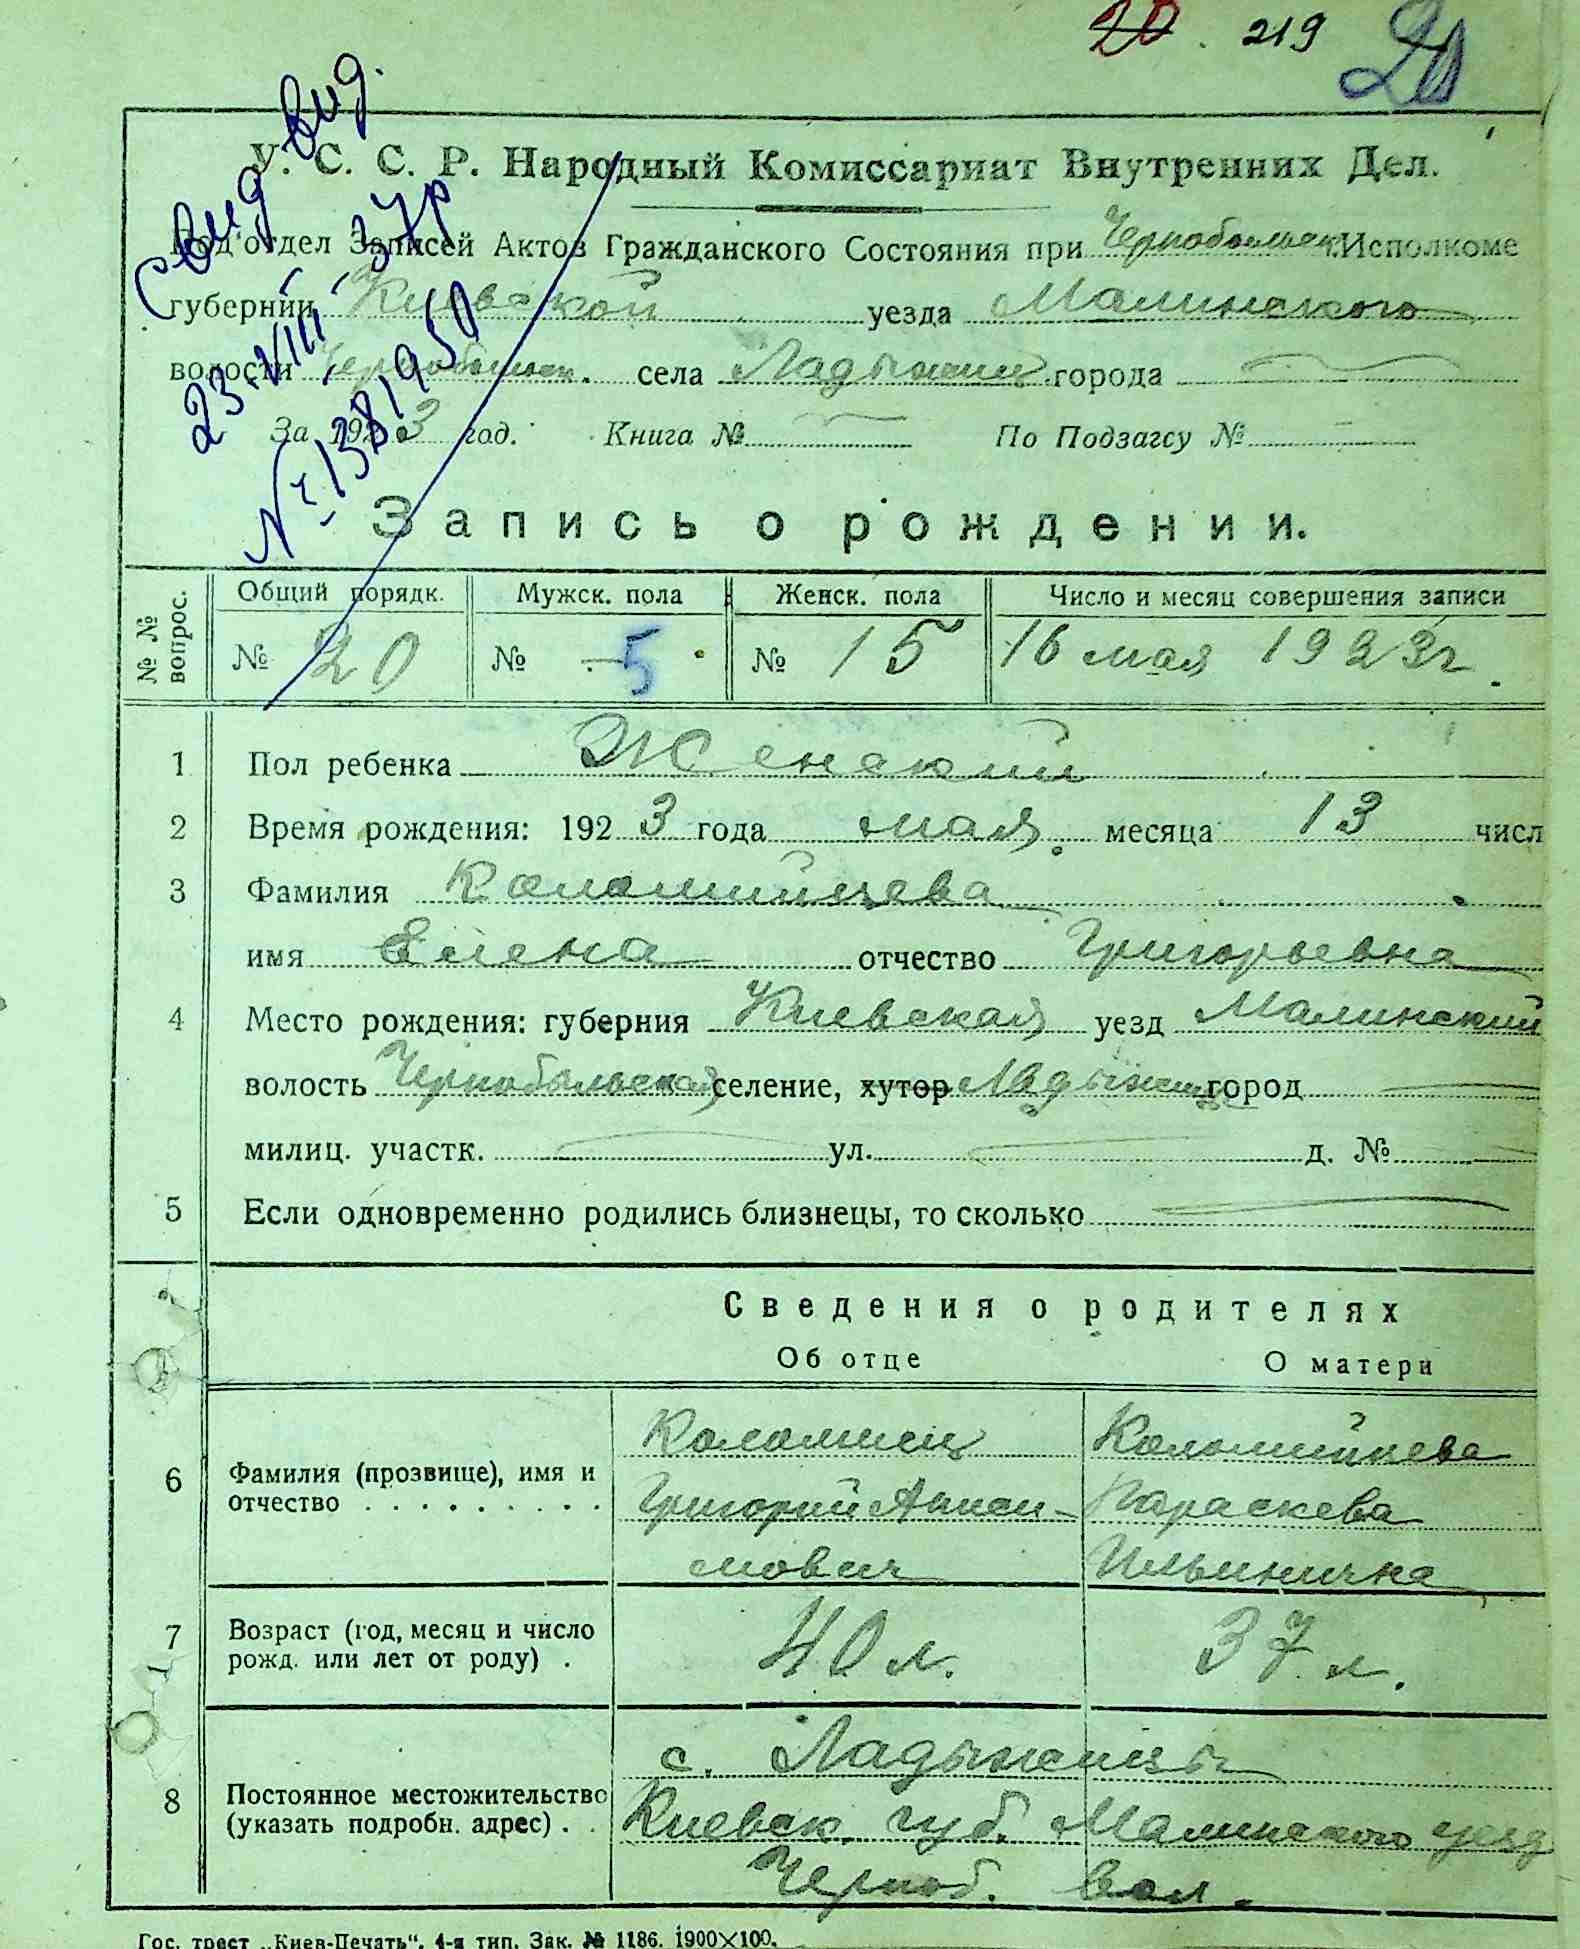 20. 219 20
У. С. С. Р. Народный Комиссариат Внутренних Дел.
Под'отдел Записей Актов Гражданского Состояния при Чернобыльск. Исполкоме
губернии Киевской уезда Малинского
волости Чернобыльск. села Ладыжичи города
За 1923 год. Книга № По Подзагсу №
Свид вид.
23-VIII-37р
№ 1381950
Запись о рождении.
№ № вопрос. Общий порядк. Мужск. пола Женск. пола Число и месяц совершения записи
№ 20 № 5 № 15 16 мая 1923г.
1 Пол ребенка Женский
2 Время рождения: 1923 года мая месяца 13 числ
3 Фамилия Коломийцева
имя Елена отчество Григорьевна
4 Место рождения: губерния Киевская уезд Малинский
волость Чернобыльская селение, хутор Ладыжичи город
милиц. участк. ул. д. №
5 Если одновременно родились близнецы, то сколько
Сведения о родителях
Об отце О матери
6 Фамилия (прозвище), имя и отчество
Коломиец Коломийцева
Григорий Аниси- Параскева
мович Ильинична
7 Возраст (год, месяц и число рожд. или лет от роду) . 40 л. 37 л.
8 Постоянное местожительство (указать подробн. адрес) . .
с. Ладыжичы
Киевск. губ. Малинского уезд
Черноб. вол.
Гос. трест „Киев-Печать“. 4-я тип. Зак. № 1186. 1900×100.